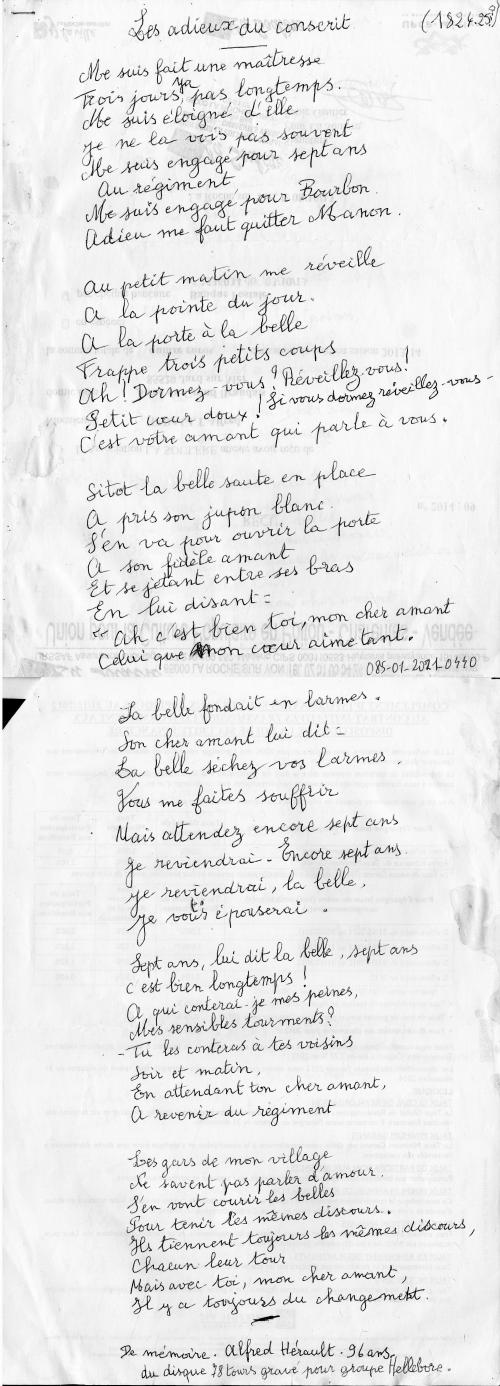 Les adieux du conscrit
(1824.25?)
Me suis fait une maîtresse
Trois jours, ya pas longtemps.
Me suis éloigné d'elle
Je ne la vois pas souvent
Me suis engagé pour sept ans
Au régiment,
Me suis engagé pour Bourbon.
Adieu me faut quitter Manon.
Au petit matin me réveille
A la pointe du jour.
A la porte à la belle
Frappe trois petits coups
Ah! Dormez-vous? Réveillez-vous!
Petit cœur doux! Si vous dormez réveillez-vous-
C'est votre amant qui parle à vous.
Sitot la belle saute en place
A pris son jupon blanc.
S'en va pour ouvrir la porte
A son fidèle amant
Et se jetant entre ses bras
En lui disant =
" Ah c'est bien toi, mon cher amant
Celui que mon cœur aime tant.
085-01-2021-0440
La belle fondait en larmes.
Son cher amant lui dit =
La belle séchez vos larmes.
Vous me faites souffrir
Mais attendez encore sept ans
Je reviendrai - Encore sept ans.
Je reviendrai, la belle,
Je vous t' épouserai.
Sept ans, lui dit la belle, sept ans
C'est bien longtemps!
A qui conterai-je mes peines,
Mes sensibles tourments?
- Tu les conteras à tes voisins
Soir et matin,
En attendant ton cher amant,
A revenir du régiment
Les gars de mon village
Ne savent pas parler d'amour.
S'en vont courir les belles
Pour tenir les mêmes discours.
Ils tiennent toujours les mêmes discours,
Chacun leur tour
Mais avec toi, mon cher amant,
Il y a toujours du changement.
De mémoire. Alfred Hérault. 96 ans.
du disque 78 tours gravé pour groupe Hellebore.